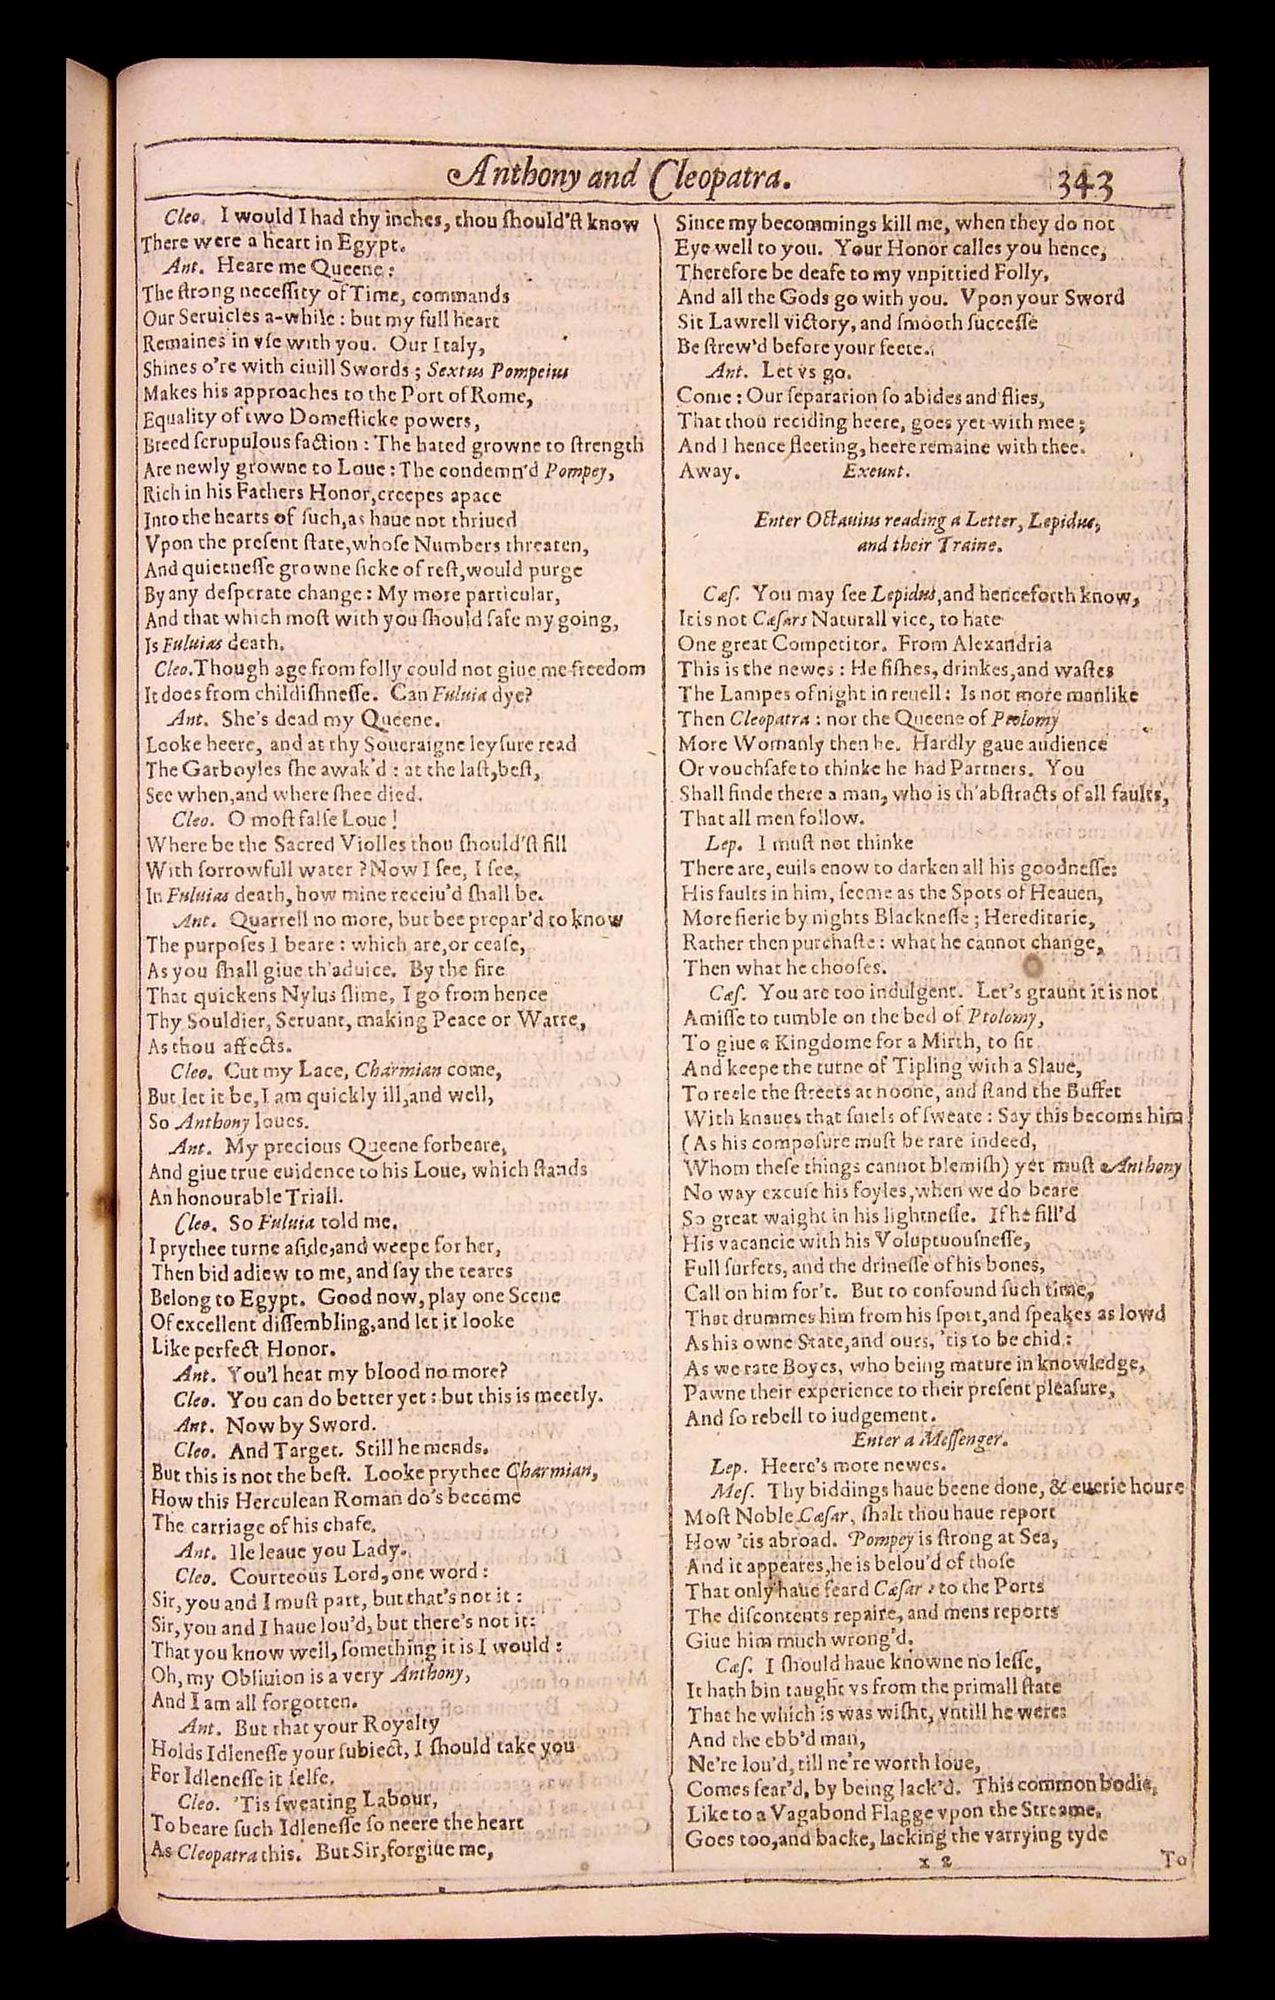 Anthony and Cleopatra.
343
Cleo. I would I had thy inches, thou ſhould'ſt know
There were a heart in Egypt.
Ant. Heare me Queene:
The ſtrong neceſſity of Time, commands
Our Seruicles a-while: but my full heart
Remaines in vſe with you. Our Italy,
Shines o're with ciuill Swords; Sextus Pompeius
Makes his approaches to the Port of Rome,
Equality of two Domeſticke powers,
Breed ſcrupulous faction: The hated growne to ſtrength
Are newly growne to Loue: The condemn'd Pompey,
Rich in his Fathers Honor, creepes apace
Into the hearts of ſuch, as haue not thriued
Vpon the preſent ſtate, whoſe Numbers threaten,
And quietneſſe growne ſicke of reſt, would purge
By any deſperate change: My more particular,
And that which moſt with you ſhould ſafe my going,
Is Fuluias death.
Cleo. Though age from folly could not giue me freedom
It does from childiſhneſſe. Can Fuluia dye?
Ant. She's dead my Queene.
Looke heere, and at thy Soueraigne leyſure read
The Garboyles ſhe awak'd: at the laſt, beſt,
See when, and where ſhee died.
Cleo. O moſt falſe Loue!
Where be the Sacred Violles thou ſhould'ſt fill
With ſorrowfull water? Now I ſee, I ſee,
In Fuluias death, how mine receiu'd ſhall be.
Ant. Quarrell no more, but bee prepar'd to know
The purpoſes I beare: which are, or ceaſe,
As you ſhall giue th'aduice. By the fire
That quickens Nylus ſlime, I go from hence
Thy Souldier, Seruant, making Peace or Warre,
As thou affects.
Cleo. Cut my Lace, Charmian come,
But let it be, I am quickly ill, and well,
So Anthony loues.
Ant. My precious Queene forbeare,
And giue true euidence to his Loue, which ſtands
An honourable Triall.
Cleo. So Fuluia told me.
I prythee turne aſide, and weepe for her,
Then bid adiew to me, and ſay the teares
Belong to Egypt. Good now, play one Scene
Of excellent diſſembling, and let it looke
Like perfect Honor.
Ant. You'l heat my blood no more?
Cleo. You can do better yet: but this is meetly.
Ant. Now by Sword.
Cleo. And Target. Still he mends.
But this is not the beſt. Looke prythee Charmian,
How this Herculean Roman do's become
The carriage of his chafe.
Ant. Ile leaue you Lady.
Cleo. Courteous Lord, one word:
Sir, you and I muſt part, but that's not it:
Sir, you and I haue lou'd, but there's not it:
That you know well, ſomething it is I would:
Oh, my Obliuion is a very Anthony,
And I am all forgotten.
Ant. But that your Royalty
Holds Idleneſſe your ſubiect, I ſhould take you
For Idleneſſe it ſelfe.
Cleo. 'Tis ſweating Labour,
To beare ſuch Idleneſſe ſo neere the heart
As Cleopatra this. But Sir, forgiue me,
Since my becommings kill me, when they do not
Eye well to you. Your Honor calles you hence,
Therefore be deafe to my vnpittied Folly,
And all the Gods go with you. Vpon your Sword
Sit Lawrell victory, and ſmooth ſucceſſe
Be ſtrew'd before your feete.
Ant. Let vs go.
Come: Our ſeparation ſo abides and flies,
That thou reciding heere, goes yet with mee;
And I hence fleeting, heere remaine with thee.
Away. Exeunt.
Enter Octauius reading a Letter, Lepidus,
and their Traine.
Cæſ. You may ſee Lepidus, and henceforth know,
It is not Cæſars Naturall vice, to hate
One great Competitor. From Alexandria
This is the newes: He fiſhes, drinkes, and waſtes
The Lampes of night in reuell: Is not more manlike
Then Cleopatra: nor the Queene of Ptolomy
More Womanly then he. Hardly gaue audience
Or vouchſafe to thinke he had Partners. You
Shall finde there a man, who is th'abſtracts of all faults,
That all men follow.
Lep. I muſt not thinke
There are, euils enow to darken all his goodneſſe:
His faults in him, ſeeme as the Spots of Heauen,
More fierie by nights Blackneſſe; Hereditarie,
Rather then purchaſte: what he cannot change,
Then what he chooſes.
Cæſ. You are too indulgent. Let's graunt it is not
Amiſſe to tumble on the bed of Ptolomy,
To giue a Kingdome for a Mirth, to ſit
And keepe the turne of Tipling with a Slaue,
To reele the ſtreets at noone, and ſtand the Buffet
With knaues that ſmels of ſweate: Say this becoms him
(As his compoſure muſt be rare indeed,
Whom theſe things cannot blemiſh) yet muſt Anthony
No way excuſe his foyles, when we do beare
So great waight in his lightneſſe. If he fill'd
His vacancie with his Voluptuouſneſſe,
Full ſurfets, and the drineſſe of his bones,
Call on him for't. But to confound ſuch time,
That drummes him from his ſport, and ſpeakes as lowd
As his owne State, and ours, 'tis to be chid:
As we rate Boyes, who being mature in knowledge,
Pawne their experience to their preſent pleaſure,
And ſo rebell to iudgement.
Enter a Meſſenger.
Lep. Heere's more newes.
Meſ. Thy biddings haue beene done, & euerie houre
Moſt Noble Cæſar, ſhalt thou haue report
How 'tis abroad. Pompey is ſtrong at Sea,
And it appeares, he is belou'd of thoſe
That only haue feard Cæſar: to the Ports
The diſcontents repaire, and mens reports
Giue him much wrong'd.
Cæſ. I ſhould haue knowne no leſſe,
It hath bin taught vs from the primall ſtate
That he which is was wiſht, vntill he were:
And the ebb'd man,
Ne're lou'd, till ne're worth loue,
Comes fear'd, by being lack'd. This common bodie,
Like to a Vagabond Flagge vpon the Streame,
Goes too, and backe, lacking the varrying tyde
x 2
To